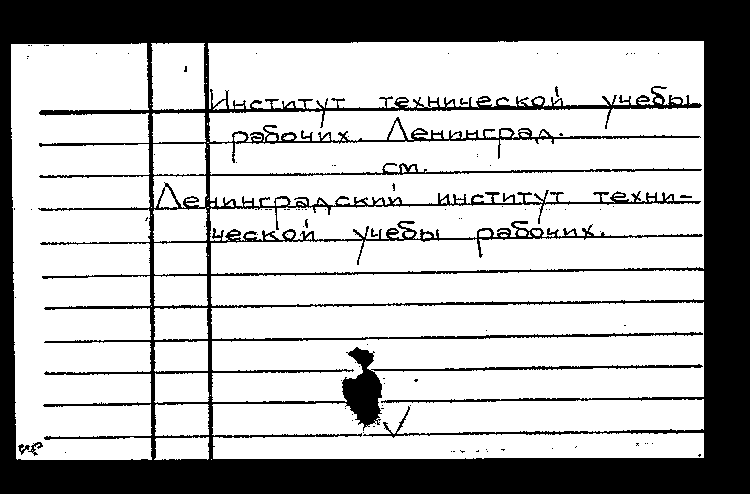 Институт технической учебы
рабочих. Ленинград.
см.
Ленинградский институт техни-
ческой учебы рабочих.